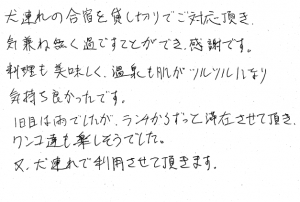 犬連れの合宿を貸し切りでご対応頂き、
気兼ね無く過ごすことができ、感謝です。
料理も美味しく、温泉も肌がツルツルになり
気持ち良かったです。
1日目は雨でしたが、ランチからずっと滞在させて頂き、
ワンコ達も楽しそうでした。
又、犬連れで利用させて頂きます。